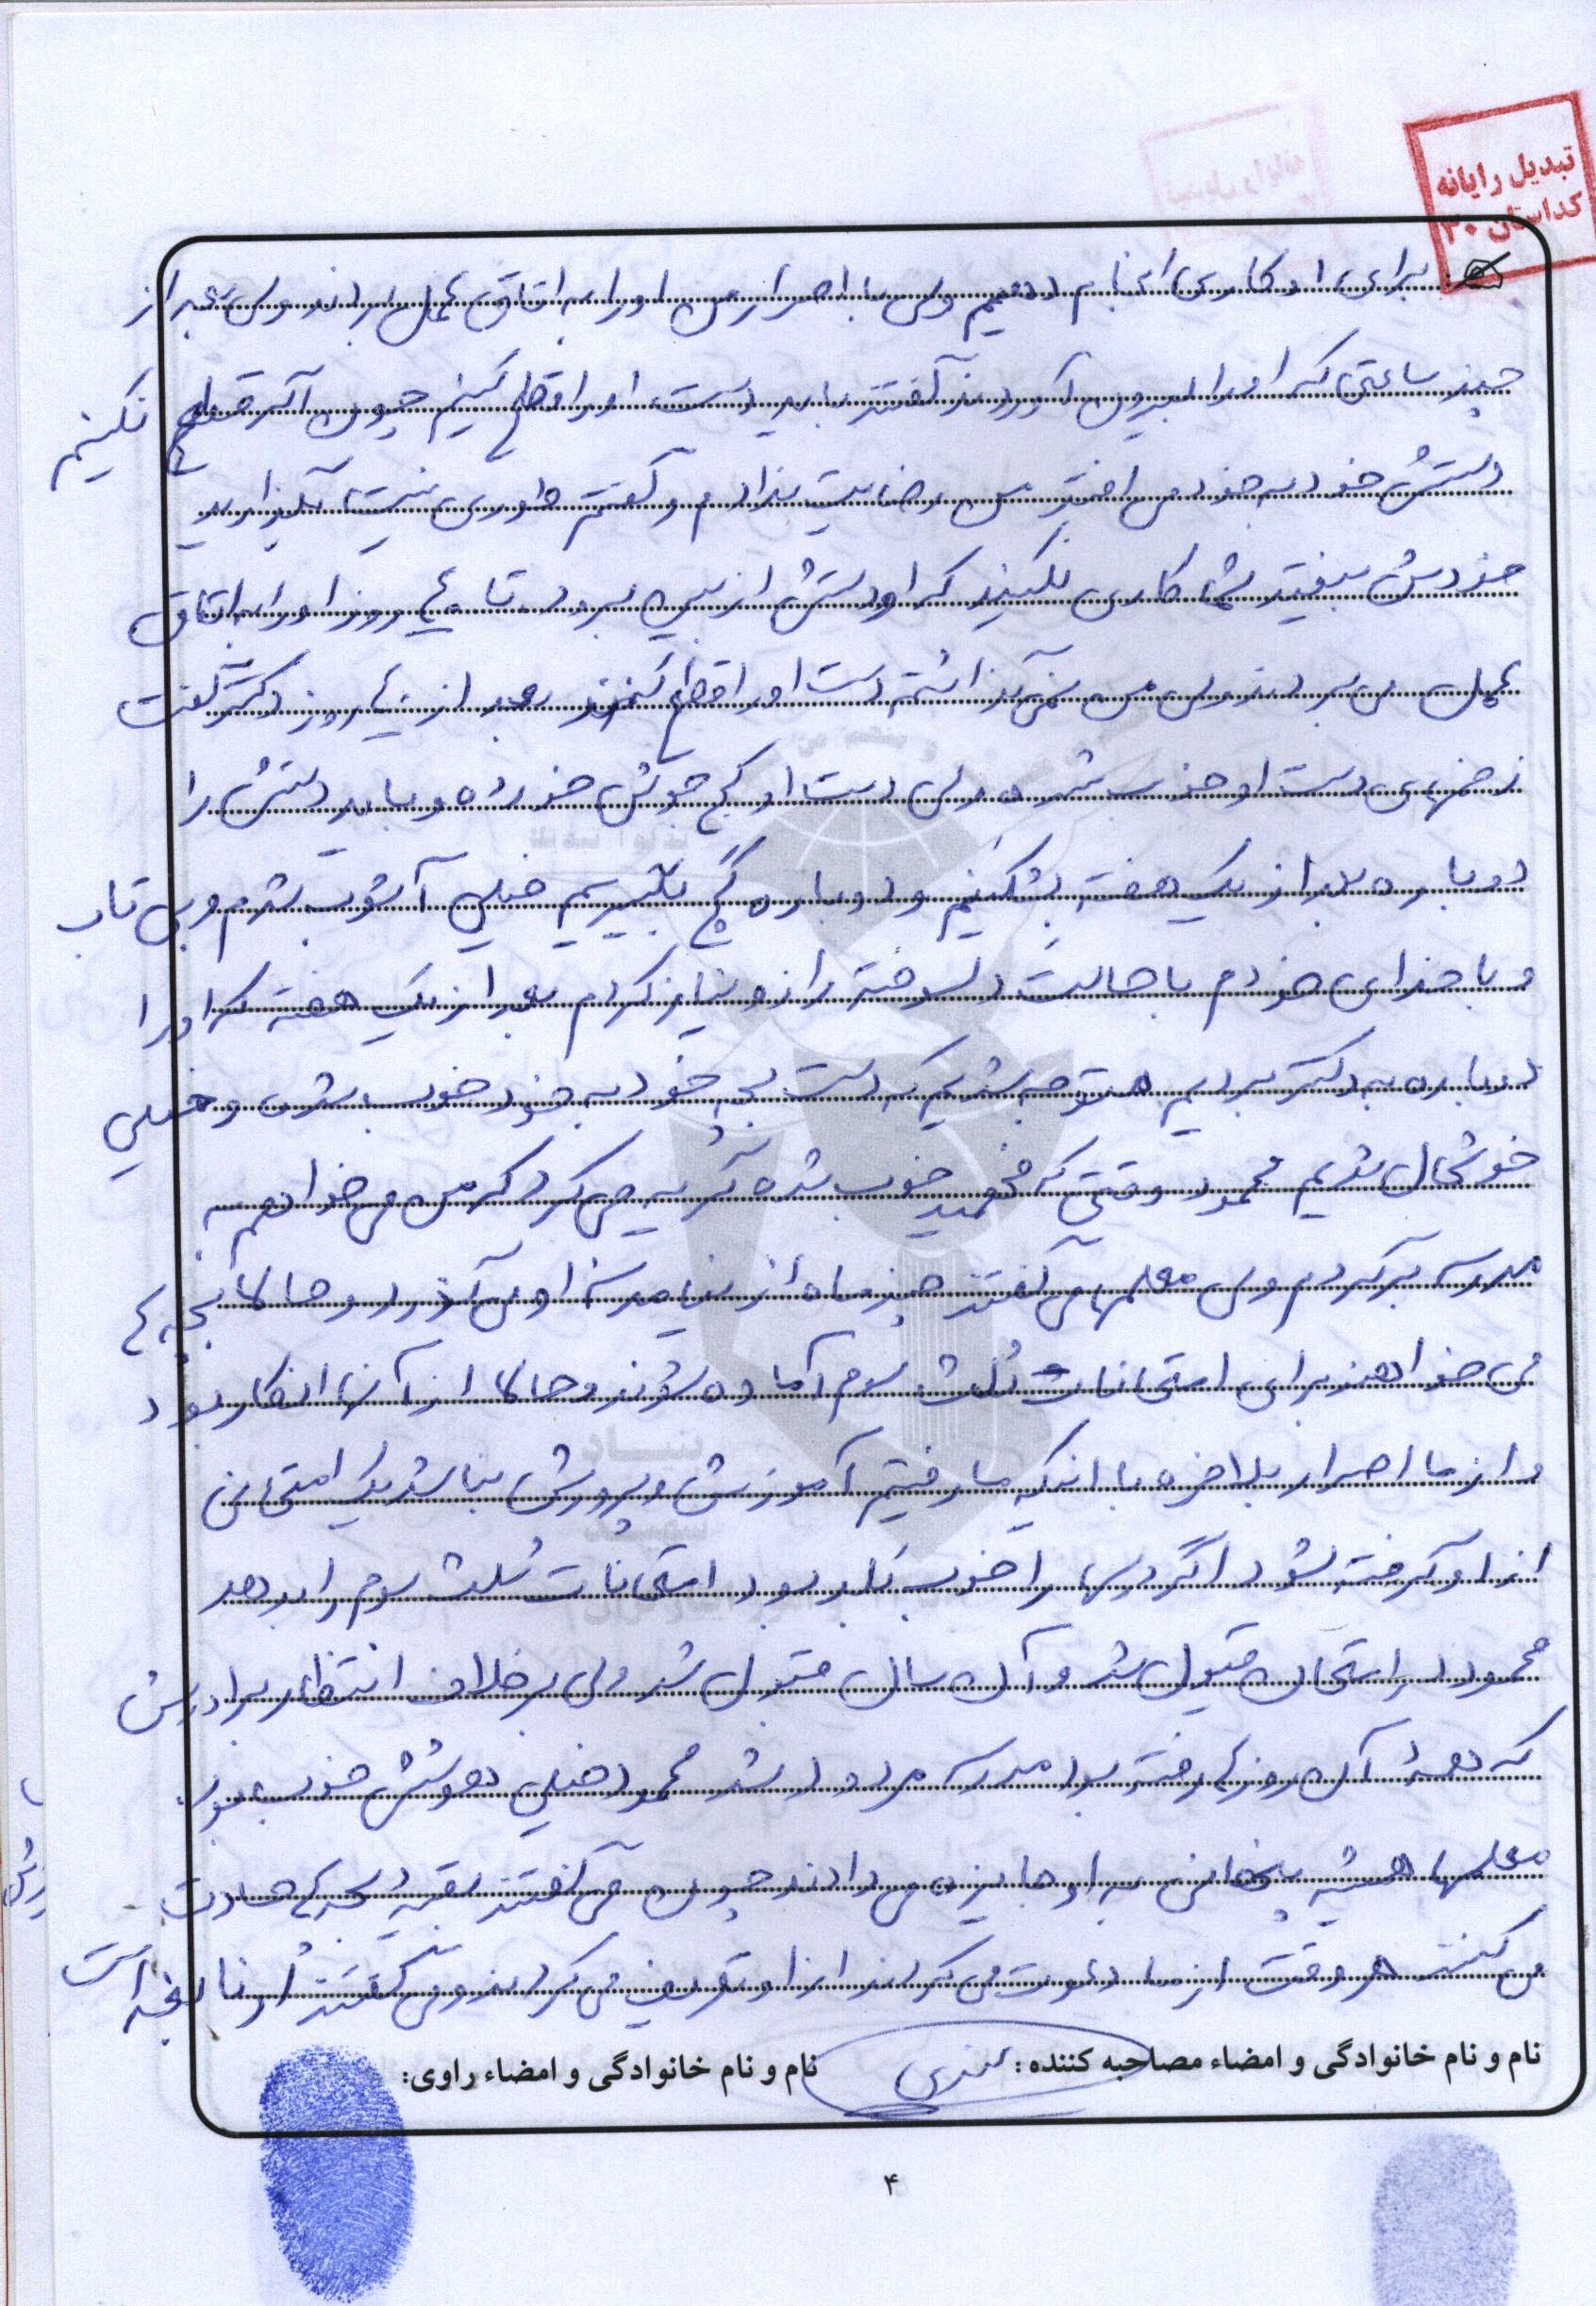 تبدیل رایانه
کد استان ۳۰
برای او کاری انجام دهیم ولی با اصرار من او را به اتاق عمل بردند ولی بعد از
چند ساعتی که او را بیرون آوردند گفتند باید دست او را قطع کنیم چون اگر قطع نکنیم
دستش خود به خود می افتد من رضایت ندادم و گفتم طوری نیست بگذارید
خودش بیفتد شما کاری نکنید که او دستش از بین برود تا ۴۰ روز او را به اتاق
عمل می بردند ولی من نمی گذاشتم دست او را قطع کنند بعد از ۴۰ روز دکتر گفت
زخمهای دست او خوب شده ولی دست او کج جوش خورده و باید دستش را
دوباره بعد از یک هفته بشکنیم و دوباره گچ بگیریم خیلی آشوب شدم و بی تاب
و با خدای خودم با حالت دلسوخته راز و نیاز کردم بعد از یک هفته که او را
دوباره به دکتر بردیم متوجه شدیم که دست بچه خود به خود خوب شده و خیلی
خوشحال شدیم محمود وقتی که فهمید خوب شده گریه می کرد که من می خواهم به
مدرسه برگردم ولی معلمها می گفتند چند ماه از بنا مدرسه اولی گذرد و حالا بچه ها
می خواهند برای امتحانات ثلث سوم آماده شوند و حالا از آنها انکار بود
و از ما اصرار بلاخره با اینکه ما رفتیم آموزش و پرورش بنا شد یک امتحانی
از او گرفته شود اگر درسها را خوب بلد بود امتحانات ثلث سوم را بدهد
محمود در امتحان قبول شد و آن سال قبول شد ولی بر خلاف انتظار برادرش
که همه آن روزها رفته بود مدرسه مردود شد محمود خیلی هوشش خوب بود
معلمها همیشه پنهانی به او جایزه می دادند چون می گفتند بقیه بچه ها حسادت
می کنند هر وقت از ما دعوت می کردند از او تعریف می کردند و می گفتند او نابغه است
نام و نام خانوادگی و امضاء مصاحبه کننده: نام و نام خانوادگی و امضاء راوی:
۴